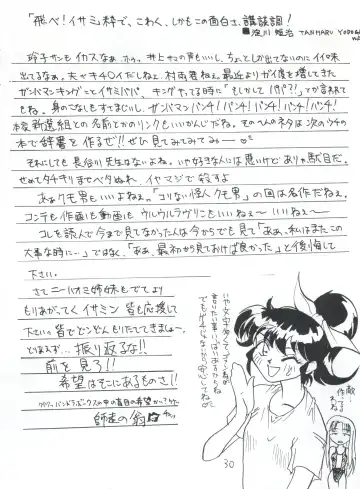 「飛べ!イサミ」枠で、こわく、しかもこの面白さ、講談調!
淀川短治 TANHARU YODOG
玲子サンもイカスなぁ、ホゥッ。井上サンの声もいいし、ちょっとしか出てないのにイイ味
出てるなぁ。大ッキ40イだしねぇ。村雨君ねぇ。最近よりガイ度を増してきた
ガンバマンキングことイサミパパ、キングやってる時に「もしかしてパパ?!」てか言われて
もね。身のこなしもすさまじいし、ガンバマンパンチ!パンチ!パンチ!パンチ!パンチ!
本家新選組との名前とかのリンクもいいかんじだね。そのへんのネタは次のウチの
本で辞書を作るぜ!!ぜひ見てみてみてみ〜
それにしても長谷川先生はないよね。いや好きな人には悪いけどありゃ駄目だ。
せめてタチキリまでベタぬれ、イヤマジで殺すよ
あぁクモ男もいいよねぇ。「コリない怪人クモ男」の回は名作だねぇ。
コンテも作画も動画もウルウルラヴリンもいいねぇ〜いいねぇ〜
コレを読んで今まで見てなかった人は今からでも見て「ああ、私はまたこの
大事な時に…」ではなく、「ああ、最初から見ておけば良かった」と後悔して
下さい。
さて ニーバオミ姉妹もでてより
もりあがってく イサミン 皆も応援して
下さい。皆でどんどん もりたてきましょー。
とりあえず…振り返るな!!
前を見ろ!!
希望はそこにあるものさ!!
師走の翁
いや文字多くってゴメンね
言いたい事いっぱいあるからね
でもゲーチじゃないから安心してね
作
敵
わ
る
ね
30